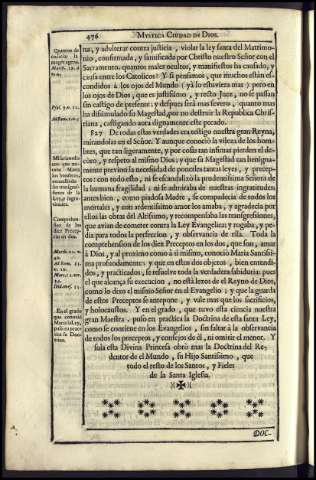 476
MYSTICA CIUDAD DE DIOS.
tus, y adulterar contra justicia, violar la ley santa del Matrimo-
nio, consumada, y santificada por Christo nuestro Señor con el
Sacramento. quantos males ocultos, y manifiestos ha causado, y
causa entre los Catolicos? Y si pensamos, que muchos están es-
condidos à los ojos del Mundo (ya lo estuviera mas) pero en
los ojos de Dios, que es justissimo, y recto Juez, no se passa
sin castigo de presente: y despues será mas severo, quanto mas
ha dissimulado su Magestad, por no destruir la Republica Chris-
tiana, castigando aora dignamente este pecado.
827 De todas estas verdades era testigo nuestra gran Reyna,
mirandolas en el Señor. Y aunque conocia la vileza de los hom-
bres, que tan ligeramente, y por cosas tan infimas pierden el de-
coro, y respeto al mismo Dios; y que su Magestad tan benignam-
ente previno la necessidad de ponerles tantas leyes, y precep-
tos: con todo esto, ni se escandalizò la prudentissima Señora de
la humana fragilidad; ni se admiraba de nuestras ingratitudes
antes bien, como piadosa Madre, se compadecia de todos los
mortales, y con ardentissimo amor los amaba, y agradecia por
ellos las obras del Altissimo, y recompensaba las transgressiones,
que avian de cometer contra la Ley Evangelica; y rogaba, y pe-
dia para todos la perfeccion, y observancia de ella. Toda la
comprehension de los diez Preceptos en los dos, que son, amar
à Dios, y al proximo como à sì mismo, conociò Maria Santis-
sima profundamente: y que en estos dos objetos, bien entendi-
dos, y practicados, se resuelve toda la verdadera sabiduria: pues
el que alcança su execucion, no està lexos del Reyno de Dios,
como lo dixo el mismo Señor en el Evangelio: y que la guarda
de estos Preceptos se antepone, y vale mas que los sacrificios,
y holocaustos. Y en el grado, que tuvo esta ciencia nuestra
gran Maestra, puso en practica la Doctrina de esta santa Ley,
como se contiene en los Evangelios, sin faltar à la observancia
de todos los preceptos, y consejos de èl, ni omitir el menor. Y
sola esta Divina Princesa obrò mas la Doctrina del Re-
dentor de el Mundo, su Hijo Santissimo, que
todo el resto de los Santos, y Fieles
de la Santa Iglesia.
DOC-